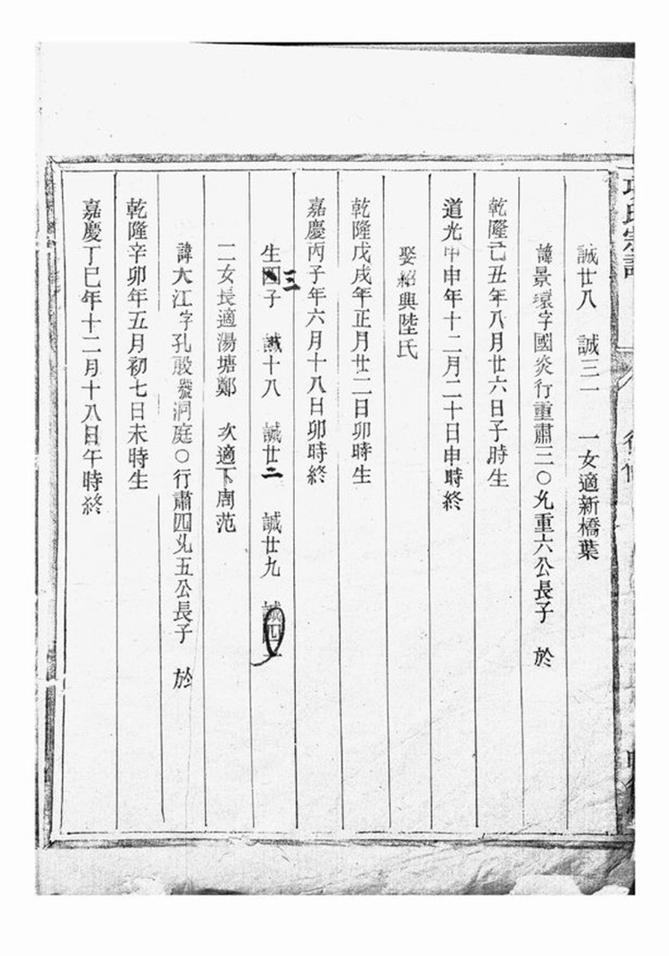 氏宗譜
誠廿八 誠三一 一女適新橋葉
諱景環字國炎行重肅三〇允重六公長子 於
乾隆己丑年八月廿六日子時生
道光甲申年十二月二十日申時終
娶紹興陸氏
乾隆戊戌年正月廿二日卯時生
嘉慶丙子年六月十八日卯時終
生四三子 誠十八 誠廿二 誠廿九
二女長適湯塘鄭 次適下周范
諱大江字孔殷發洞庭〇行肅四允五公長子 於
乾隆辛卯年五月初七日未時生
嘉慶丁巳年十二月十八日午時終